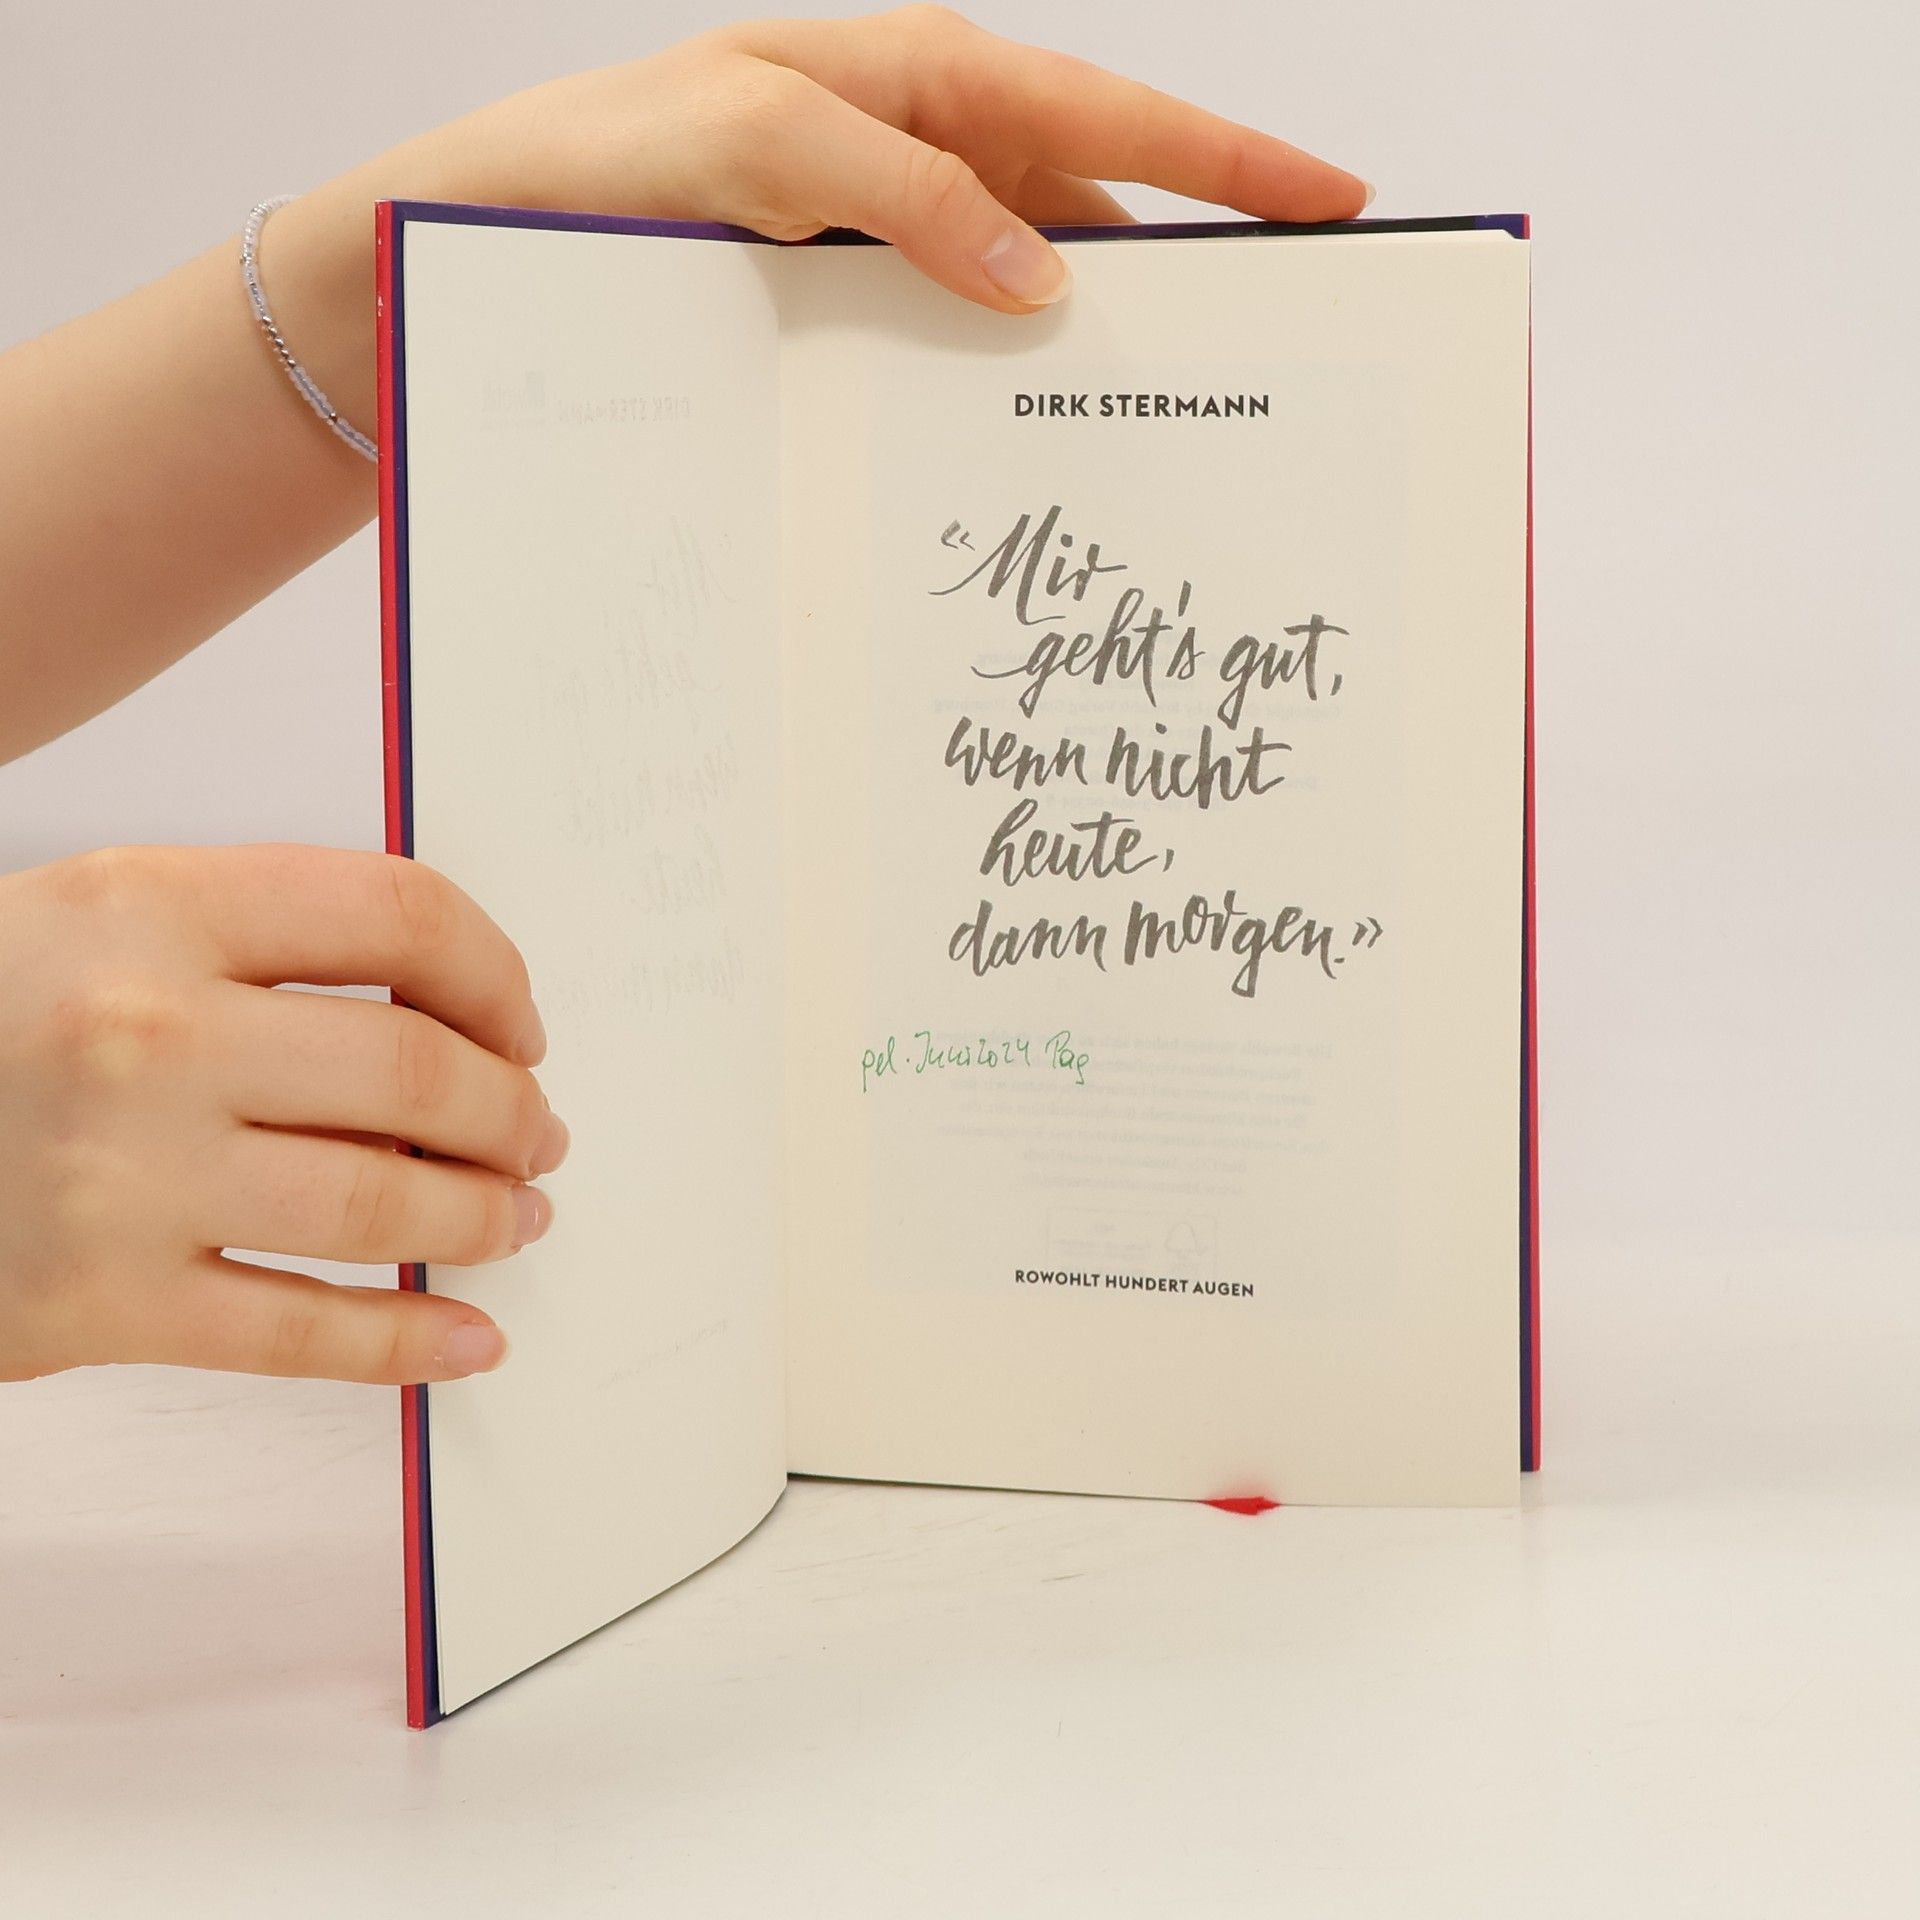 DIRK STERMANN
«Mir
geht's gut,
wenn nicht
heute,
dann morgen.»
gel. Juni 2024 Pag
ROWOHLT HUNDERT AUGEN